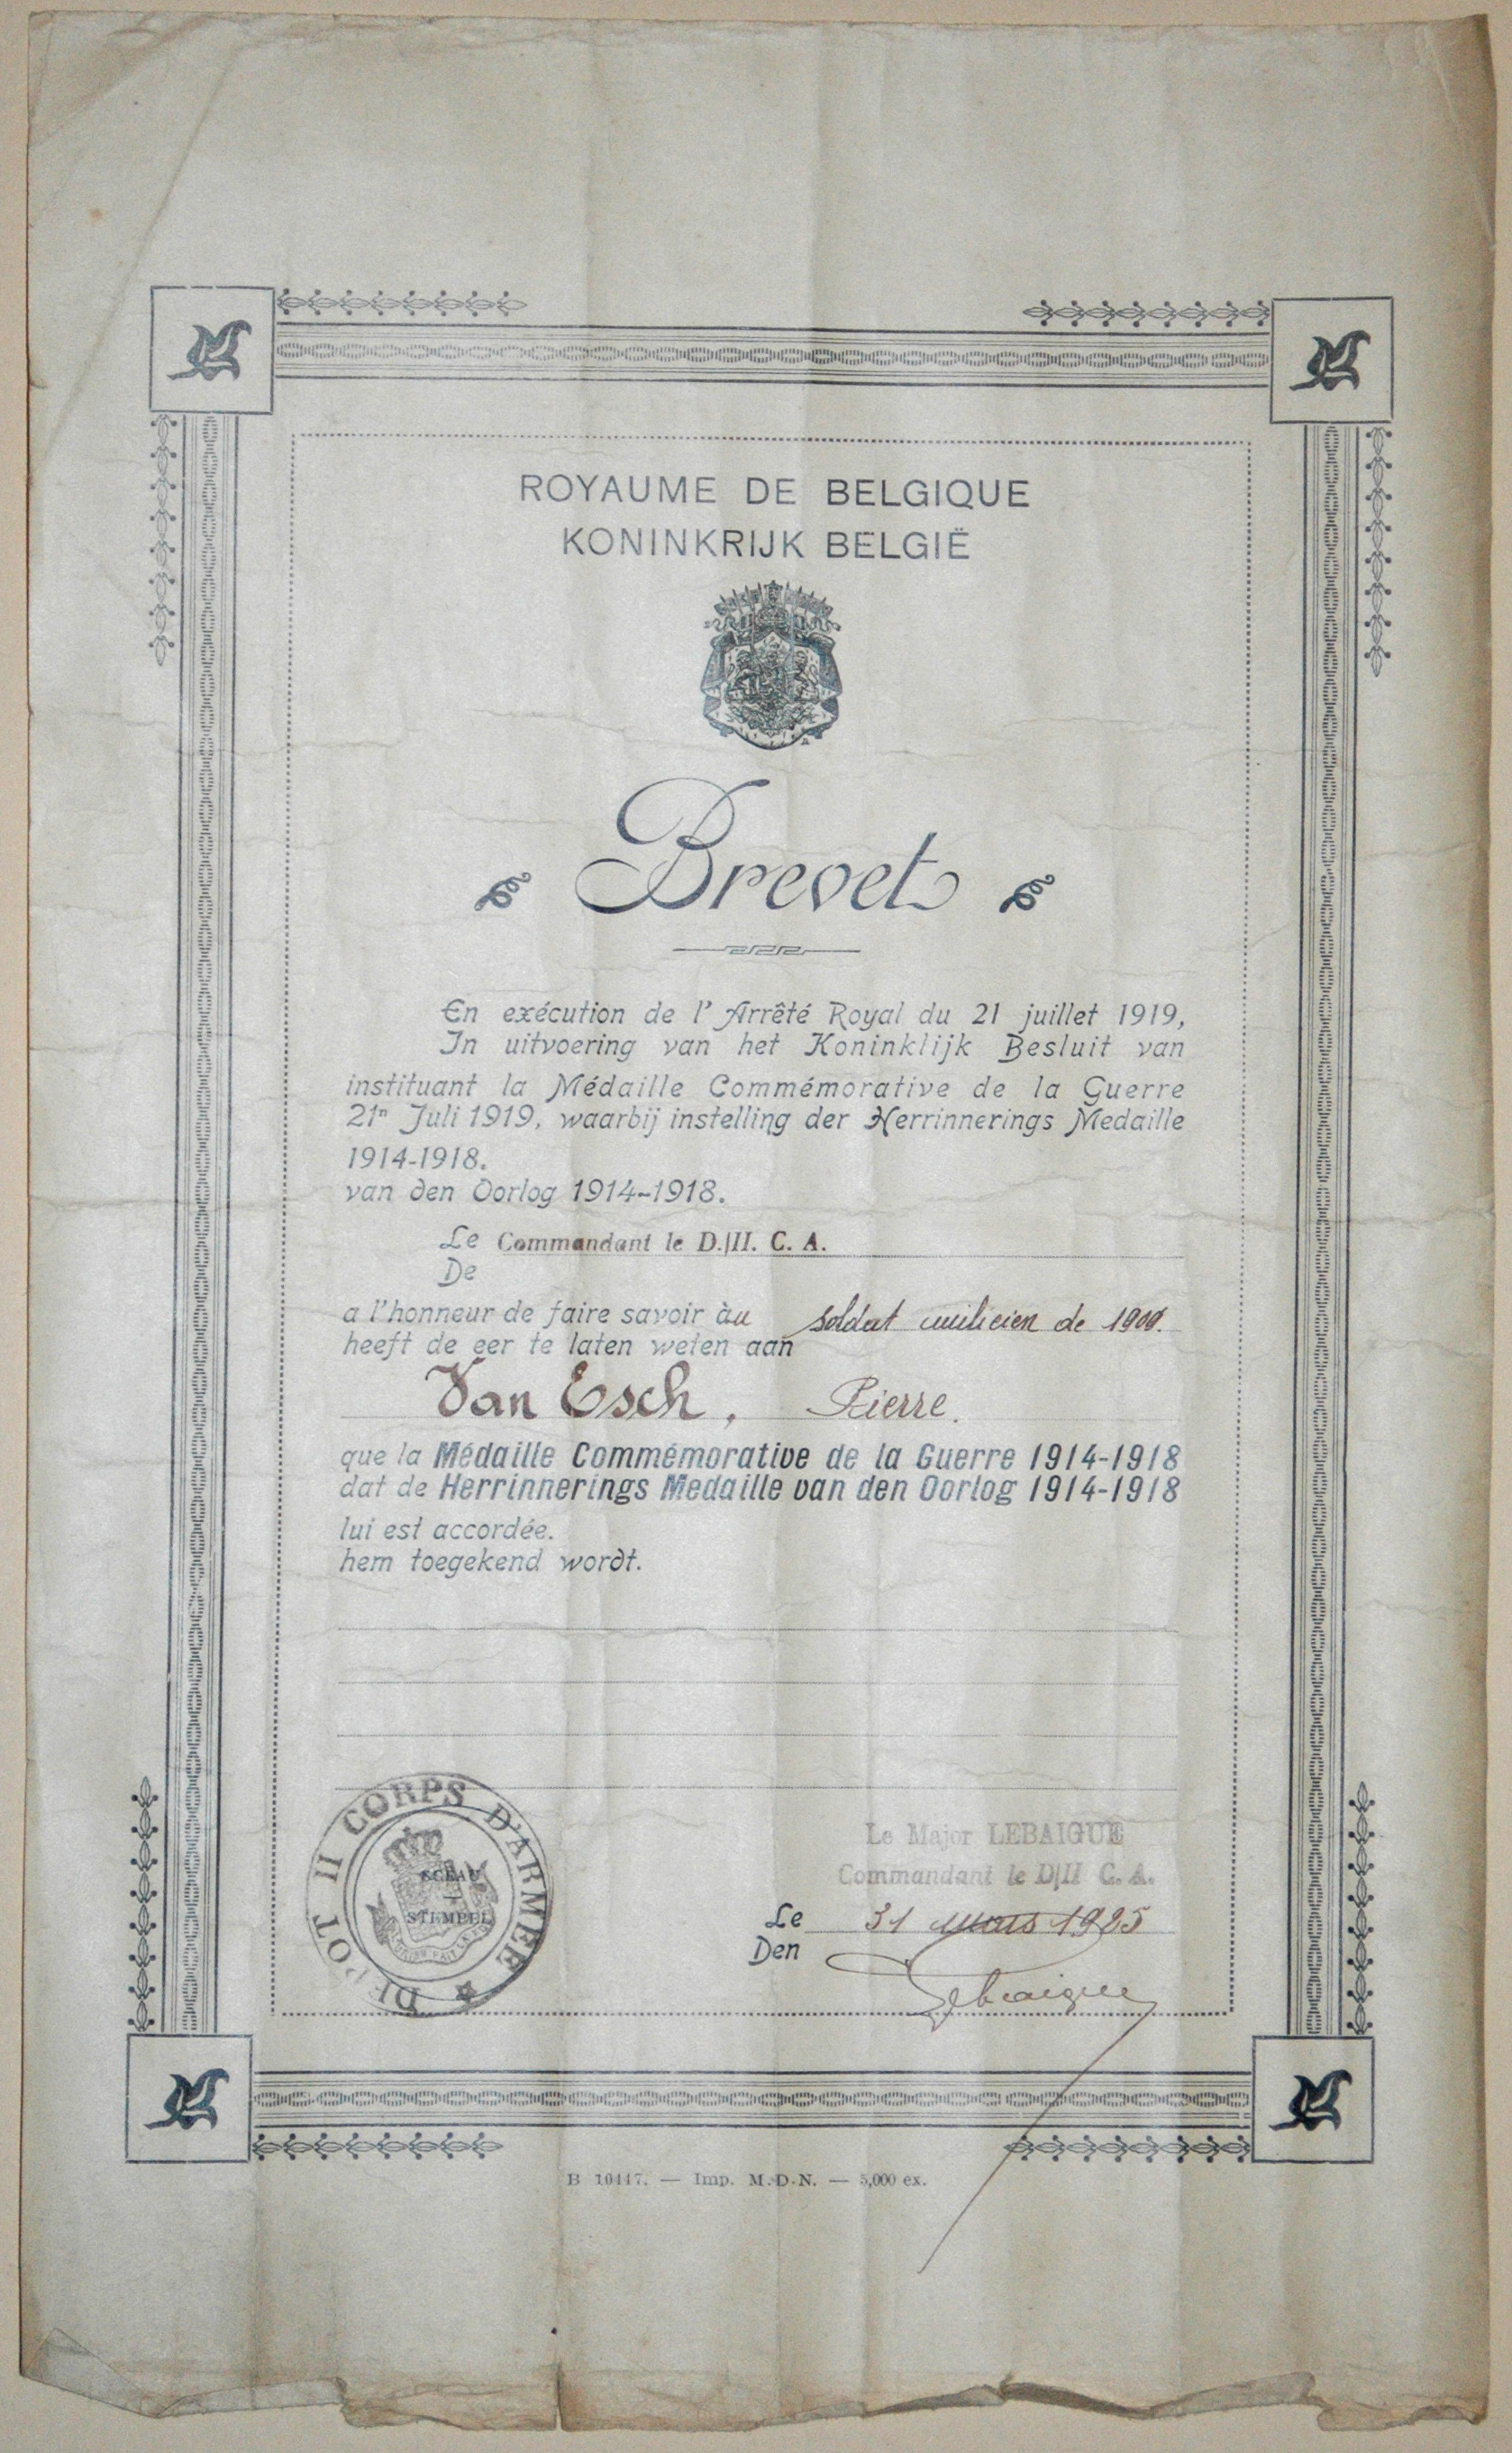 ROYAUME DE BELGIQUE
KONINKRIJK BELGIË
Brevet
En exécution de l'Arrêté Royal du 21 juillet 1919,
In uitvoering van het Koninklijk Besluit van
instituant la Médaille Commémorative de la Guerre
21n Juli 1919, waarbij instelling der Herrinnerings Medaille
1914-1918.
van den Oorlog 1914-1918.
Le Commandant le D./II. C. A.
De
a l'honneur de faire savoir àu soldat milicien de
heeft de eer te laten weten aan
Van Esch, Pierre.
que la Médaille Commémorative de la Guerre 1914-1918
dat de Herrinnerings Medaille van den Oorlog 1914-1918
lui est accordée.
hem toegekend wordt.
DEPOT II CORPS D'ARMEE
SCEAU
STEMPEL
Le Major LEBAIGUE
Commandant le D/II C. A.
Le 31 Mars 1925
Den
Lebaigue
B 10447. — Imp. M.D.N. — 5,000 ex.